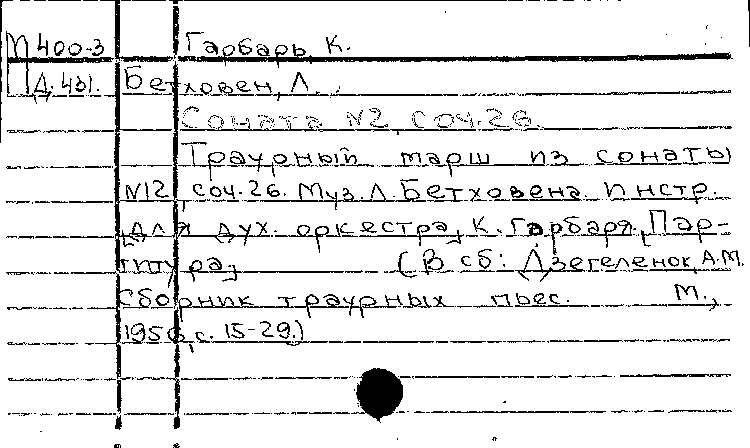 М 400-3 Гарбарь, К.
Д. 431. Бетховен, Л.
Соната №2, соч. 26.
Траурный марш из сонаты
№12, соч. 26. Муз. Л. Бетховена. Инстр.
[для дух. оркестра] К. Гарбаря. [Пар-
титура] (В сб: Дзегеленок, А.М.
Сборник траурных пьес. М.,
1950, с. 15-29.)